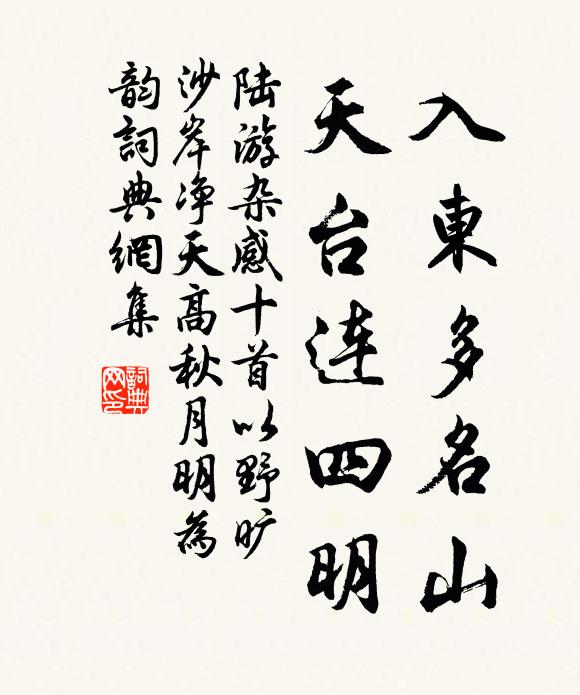 入東多名山
天台连四明
陆游杂感十首以野旷
沙岸净天高秋月明為
韵詞典網集
詞典
网印